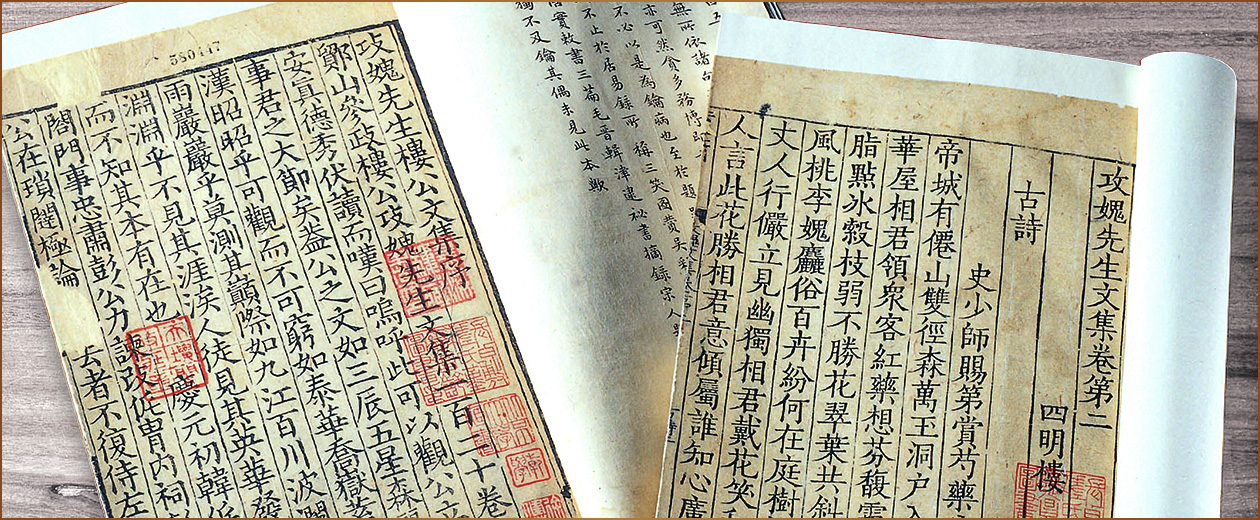 580447
攻媿先生樓公文集序
鄮山參政樓公攻媿先生文集一百二十卷
安真德秀伏讀而嘆曰嗚呼此可以觀公
事君之大節矣葢公之文如三辰五星森
漢昭昭乎可觀而不可窮如泰華喬嶽蓄
雨嚴嚴乎莫測其巔際如九江百川波瀾
淵淵乎不見其涯涘人徒見其英華發
而不知其本有在也慶元初韓侂
閤門事忠肅彭公力諫改侂胄內祠
公在瑣闥極論 去者不復侍左
無所依諸
亦可然貪多務博
不必以是為鑰病也至於題
不止於居易錄所稱三笑圖贊
實敕書三篇毛晉輯津逮祕書摘錄宋人
獨不及鑰其偶未見此本歟
攻媿先生文集卷第二
四明樓
古詩
史少師賜第賞芍藥
帝城有僊山雙徑森萬玉洞戶
華屋相君領衆客紅藥想芬馥
脂點氷縠枝弱不勝花翠葉共斜
風桃李媿麤俗百卉紛何在庭樹
丈人行儼立見幽獨相君戴花笑
人言此花勝相君意傾屬誰知心廣